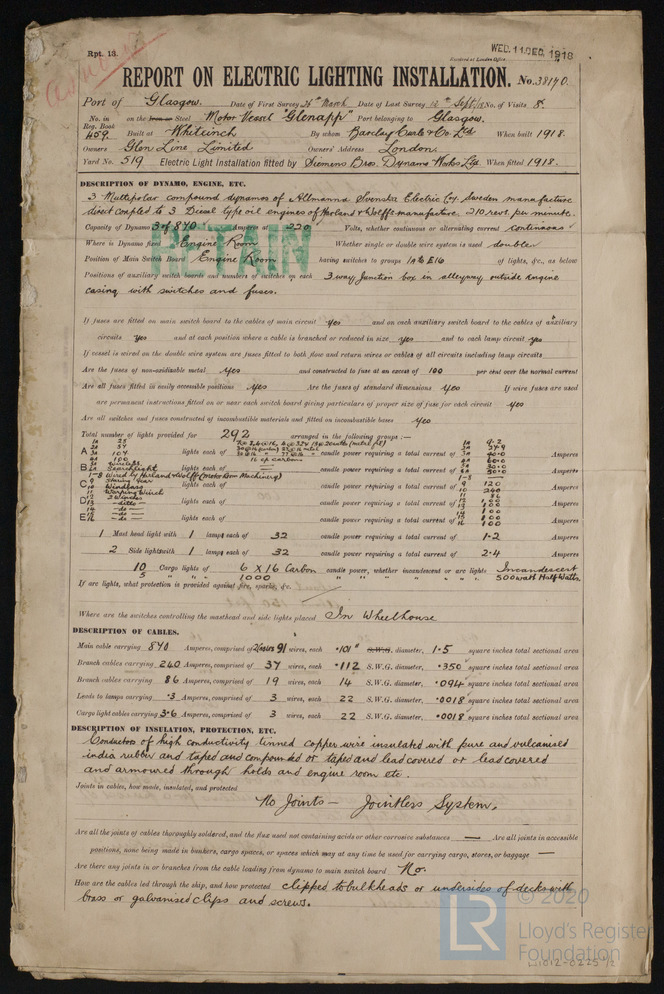 Rpt. 13.
WED. 11 DEC. 1918
Received at London Office
REPORT ON ELECTRIC LIGHTING INSTALLATION. No. 38170.
Port of Glasgow. Date of First Survey 26th March Date of Last Survey 12th Sept/18 No. of Visits 8.
No. in on the Iron or Steel Motor Vessel "Glenapp" Port belonging to Glasgow.
Reg. Book
459. Built at Whiteinch By whom Barclay Curle & Co. Ltd When built 1918.
Owners Glen Line Limited Owners' Address London.
Yard No. 519 Electric Light Installation fitted by Siemens Bros. Dynamo Works Ltd. When fitted 1918.
DESCRIPTION OF DYNAMO, ENGINE, ETC.
3 Multipolar compound dynamos of Allmanna Svenska Electric Coy. Sweden manufacture
direct coupled to 3 Diesel type oil engines of Harland & Wolff's manufacture. 210 revs. per minute.
Capacity of Dynamo 3 of 870 Amperes at 220 Volts, whether continuous or alternating current continuous
Where is Dynamo fixed Engine Room Whether single or double wire system is used double
RETAIN
Position of Main Switch Board Engine Room having switches to groups 1A to E16 of lights, &c., as below
Positions of auxiliary switch boards and numbers of switches on each 3 way Junction box in alleyway outside engine
casing with switches and fuses.
If fuses are fitted on main switch board to the cables of main circuit yes and on each auxiliary switch board to the cables of auxiliary
circuits yes and at each position where a cable is branched or reduced in size yes and to each lamp circuit yes
If vessel is wired on the double wire system are fuses fitted to both flow and return wires or cables of all circuits including lamp circuits
Are the fuses of non-oxidizable metal yes and constructed to fuse at an excess of 100 per cent over the normal current
Are all fuses fitted in easily accessible positions yes Are the fuses of standard dimensions yes If wire fuses are used
are permanent instructions fitted on or near each switch board giving particulars of proper size of fuse for each circuit yes
Are all switches and fuses constructed of incombustible materials and fitted on incombustible bases yes
Total number of lights provided for 292 arranged in the following groups :—
A lights each of candle power requiring a total current of Amperes
B Searchlight lights each of candle power requiring a total current of Amperes
1-8 Wired by Harland & Wolff (Motor Room Machinery) 1-8
C 9 Steering Gear lights each of candle power requiring a total current of 120 Amperes
10 Windlass 240
11 Warping Winch 86
D lights each of candle power requiring a total current of Amperes
E lights each of candle power requiring a total current of Amperes
1 Mast head light with 1 lamps each of 32 candle power requiring a total current of 1.2 Amperes
2 Side lights with 1 lamps each of 32 candle power requiring a total current of 2.4 Amperes
10 Cargo lights of 6 X 16 Carbon candle power, whether incandescent or arc lights Incandescent
5 " " " 1000 " " " " " " 500 watt Half Watts.
If arc lights, what protection is provided against fire, sparks, &c.
Where are the switches controlling the masthead and side lights placed In Wheelhouse
DESCRIPTION OF CABLES.
Main cable carrying 870 Amperes, comprised of 91 wires, each .101" S.W.G. diameter, 1.5 square inches total sectional area
Branch cables carrying 240 Amperes, comprised of 37 wires, each .112 S.W.G. diameter, .350 square inches total sectional area
Branch cables carrying 86 Amperes, comprised of 19 wires, each 14 S.W.G. diameter, .094 square inches total sectional area
Leads to lamps carrying .3 Amperes, comprised of 3 wires, each 22 S.W.G. diameter, .0018 square inches total sectional area
Cargo light cables carrying 3.6 Amperes, comprised of 3 wires, each 22 S.W.G. diameter, .0018 square inches total sectional area
DESCRIPTION OF INSULATION, PROTECTION, ETC.
Conductors of high conductivity tinned copper wire insulated with pure and vulcanised
india rubber and taped and compounded or taped and lead covered or lead covered
and armoured through holds and engine room etc.
Joints in cables, how made, insulated, and protected
No Joints — Jointless System.
Are all the joints of cables thoroughly soldered, and the flux used not containing acids or other corrosive substances — Are all joints in accessible
positions, none being made in bunkers, cargo spaces, or spaces which may at any time be used for carrying cargo, stores, or baggage —
Are there any joints in or branches from the cable leading from dynamo to main switch board No.
How are the cables led through the ship, and how protected clipped to bulkheads or undersides of decks with
brass or galvanised clips and screws.
© 2020
LR Lloyd's Register
Foundation